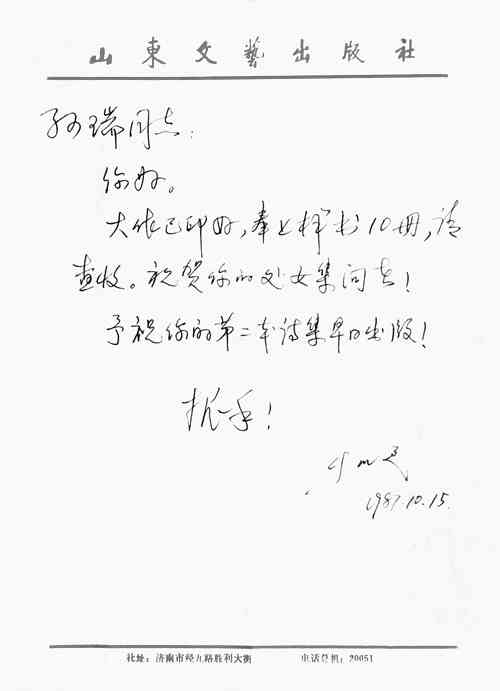 山東文藝出版社
孙瑞同志:
你好。
大作已印好,奉上样书10册,请
查收。祝贺你的处女集问世!
予祝你的第二本诗集早日出版!
握手!
1987.10.15.
社址:济南市经九路胜利大街 电话总机:20051